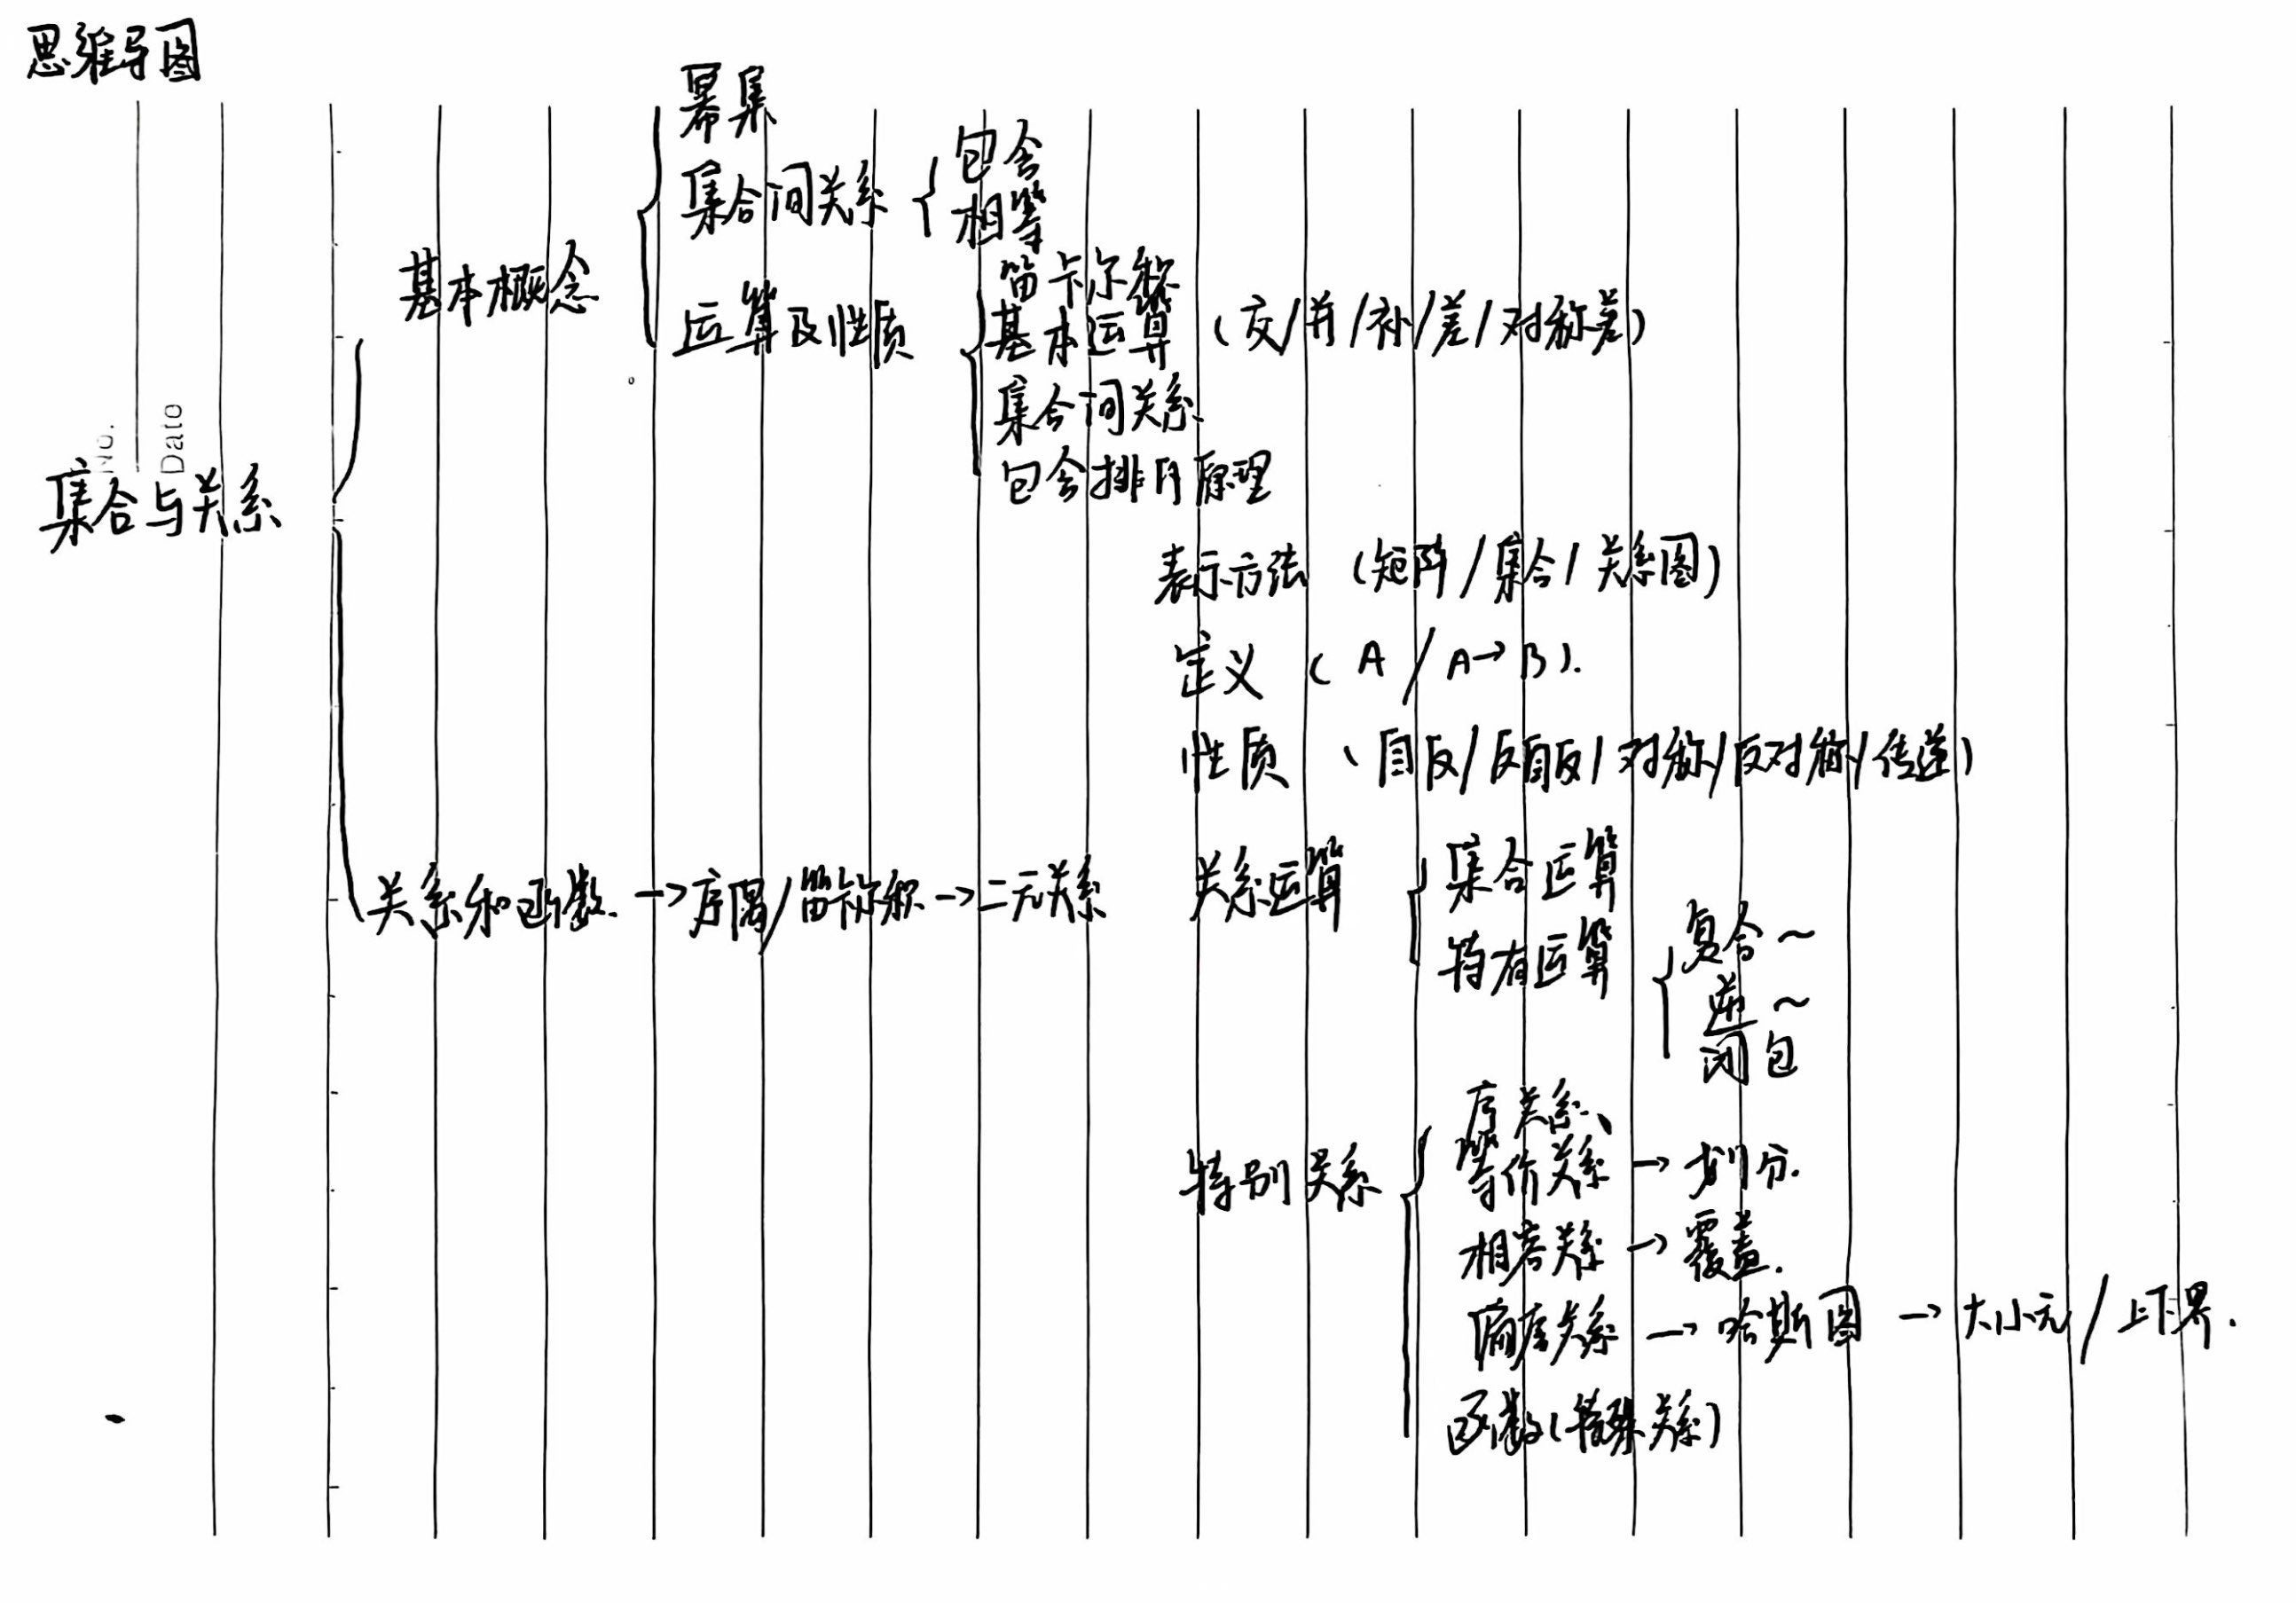 思维导图
No.
Date
集合与关系
基本概念
幂集
集合间关系
包含
相等
运算及性质
笛卡尔积
基本运算 (交/并/补/差/对称差)
集合间关系
包含排斥原理
关系和函数 → 序偶/笛卡尔积 → 二元关系
表示方法 (矩阵/集合/关系图)
定义 (A/A→B).
性质 (自反/反自反/对称/反对称/传递)
关系运算
集合运算
特有运算
复合~
逆~
闭包
特别关系
序关系、
等价关系 → 划分.
相容关系 → 覆盖.
偏序关系 → 哈斯图 → 大小元/上下界.
函数(特殊关系)